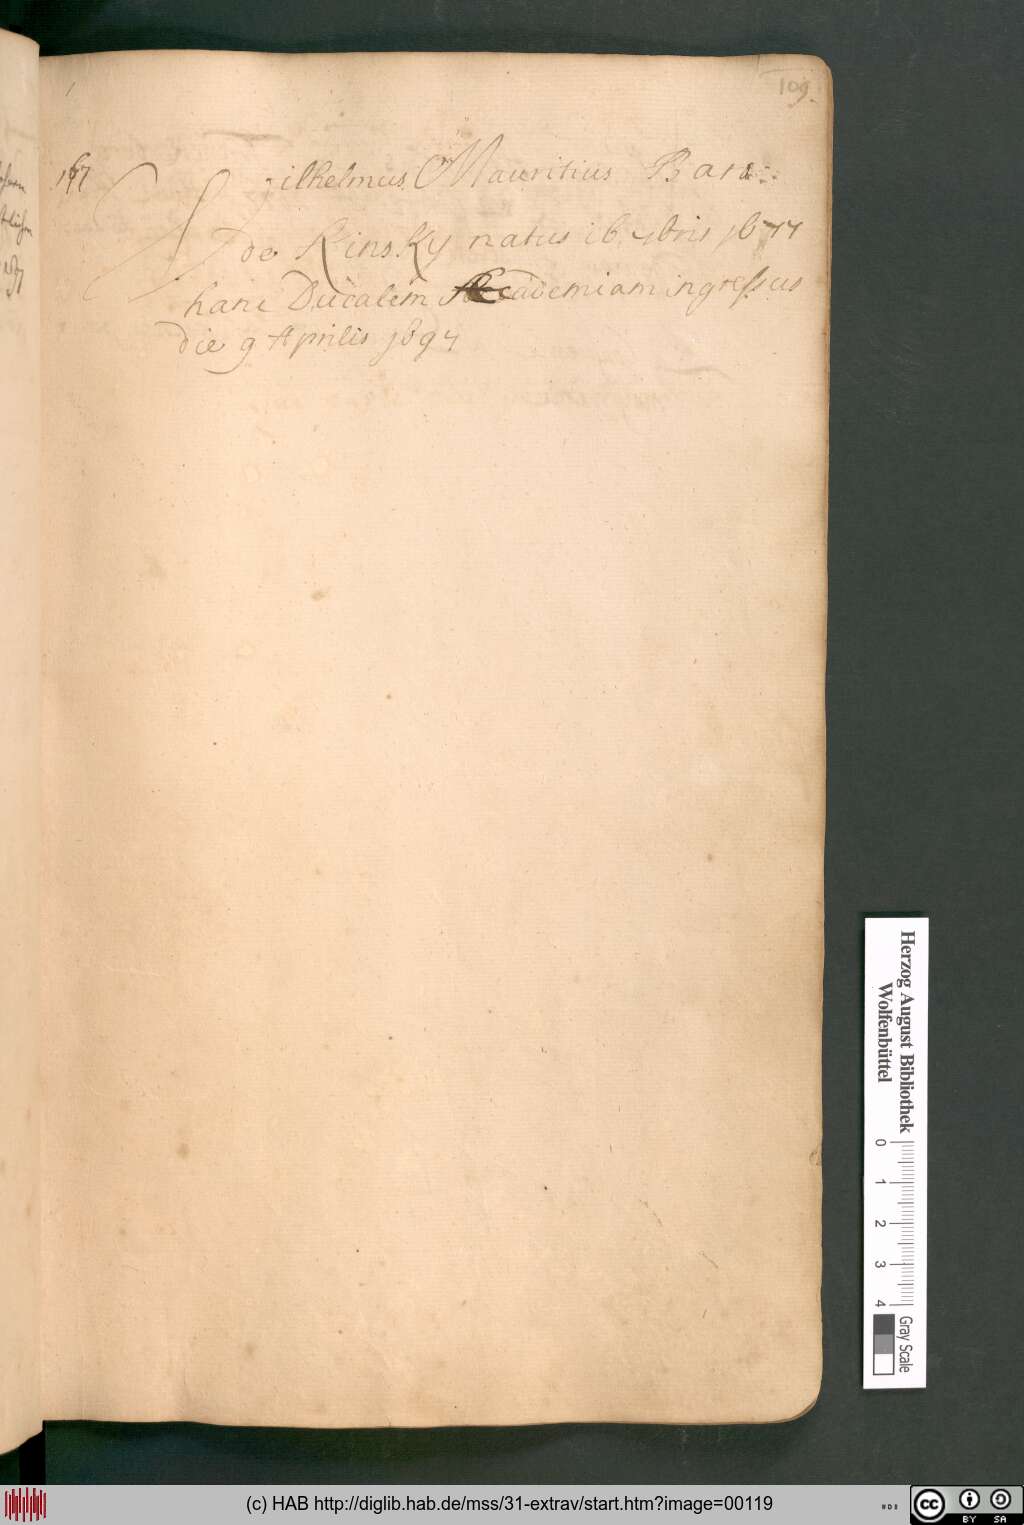 109.
167
Wilhelmus Mauritius Baro
de Kinsky natus 16 7bris 1677
hanc Ducalem Academiam ingressus
die 9 Aprilis 1697
Herzog August Bibliothek
Wolfenbüttel
0 1 2 3 4
Gray Scale
(c) HAB http://diglib.hab.de/mss/31-extrav/start.htm?image=00119
BY SA